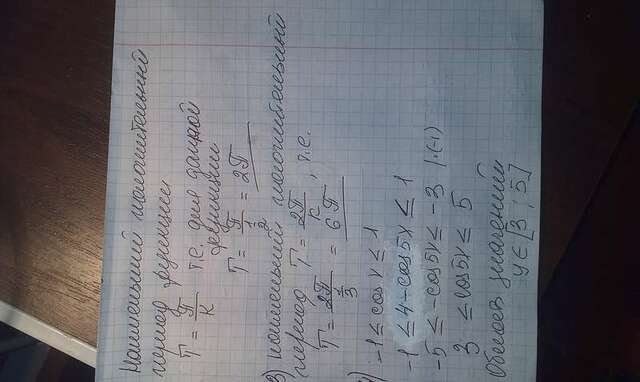 Наименьший положительный
период функции
T = π/K т.е. для данной
функции
T = π/(1/2) = 2π
3) наименьший положительный
период T = 2π/K, т.е.
T = 2π/(1/3) = 6π
-1 ≤ cos x ≤ 1
-1 ≤ 4 - cos5x ≤ 1
-5 ≤ -cos5x ≤ -3 |·(-1)
3 ≤ cos5x ≤ 5
Область значений
y ∈ [3 ; 5]